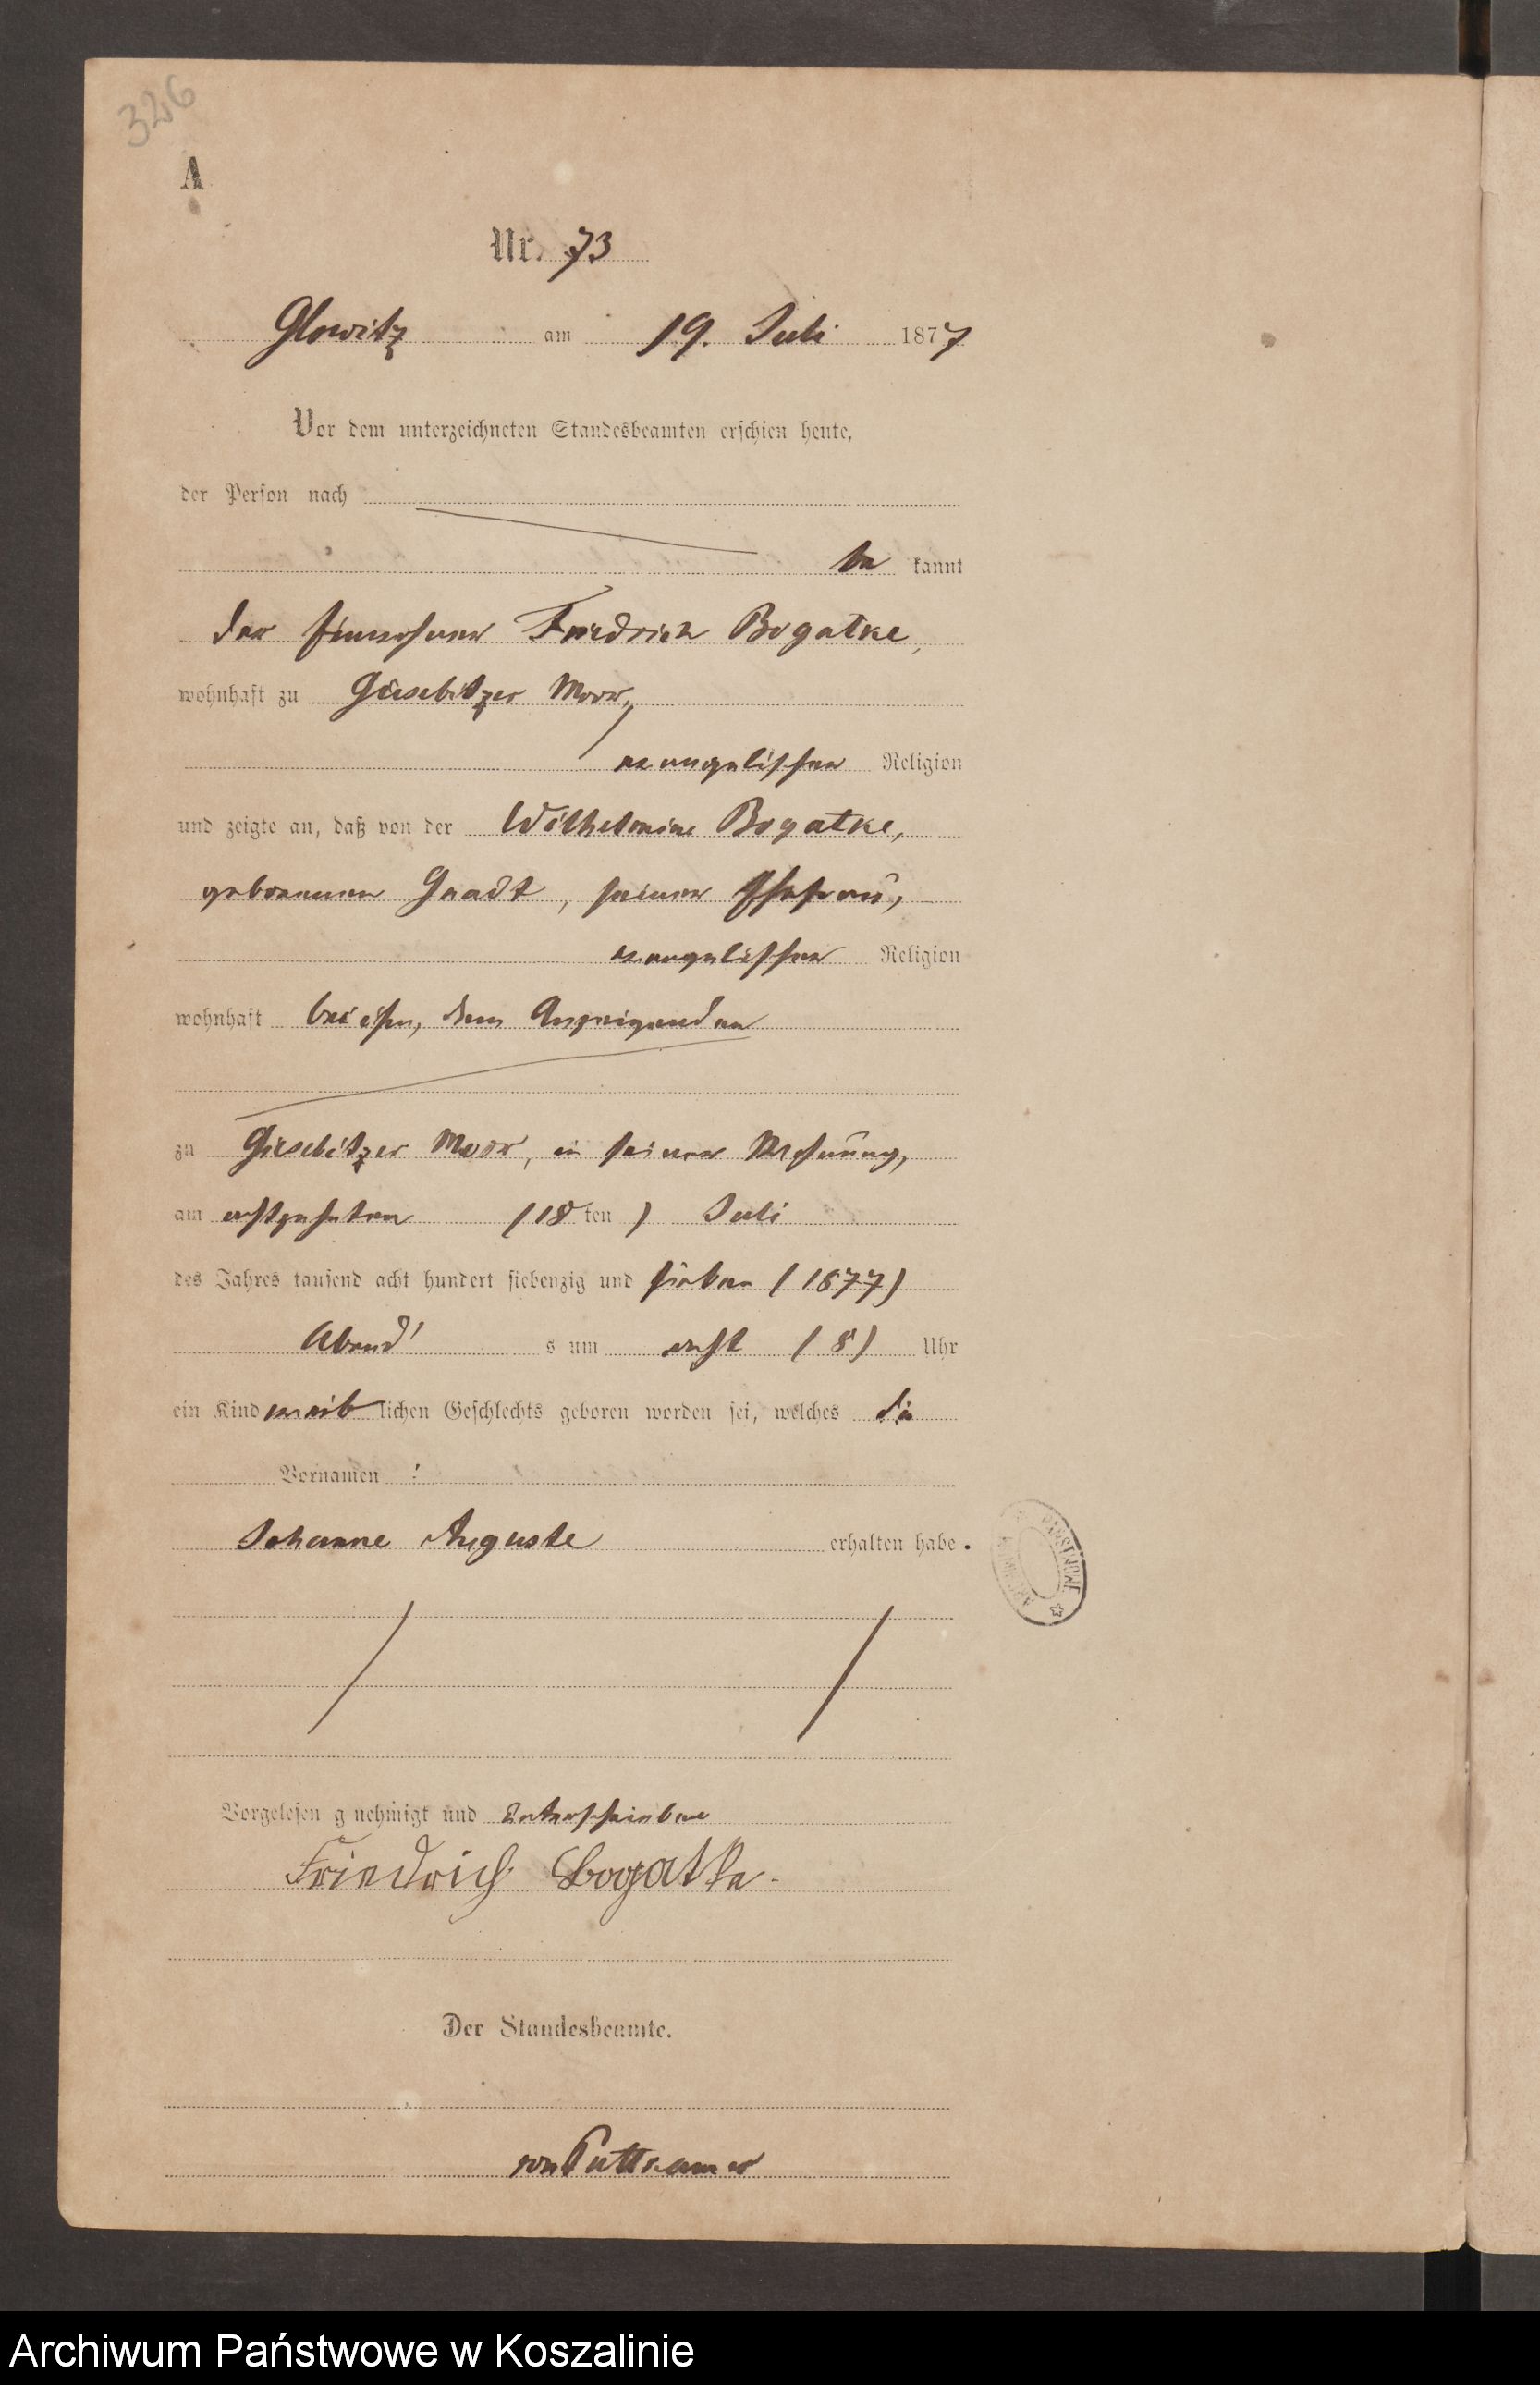 326
A
Nr. 73
Glowitz am 19. Juli 1877
Vor dem unterzeichneten Standesbeamten erschien heute,
der Person nach
be kannt
der Einwohner Friedrich Bogatke,
wohnhaft zu Giesebitzer Moor,
evangelischer Religion
und zeigte an, daß von der Wilhelmine Bogatke,
geborenen Gaadt, seiner Ehefrau,
evangelischer Religion
wohnhaft bei ihm, dem Anzeigenden
zu Giesebitzer Moor, in seiner Wohnung,
am achtzehnten (18 ten) Juli
des Jahres tausend acht hundert siebenzig und sieben (1877)
Abend s um acht (8) Uhr
ein Kind weib lichen Geschlechts geboren worden sei, welches die
Vornamen :
Johanne Auguste erhalten habe.
PAŃSTWOWE
Vorgelesen g nehmigt und unterschrieben
Friedrich Bogatke.
Der Standesbeamte.
von Puttkamer
Archiwum Państwowe w Koszalinie